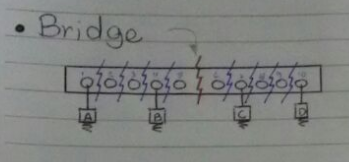 • Bridge
A B C D